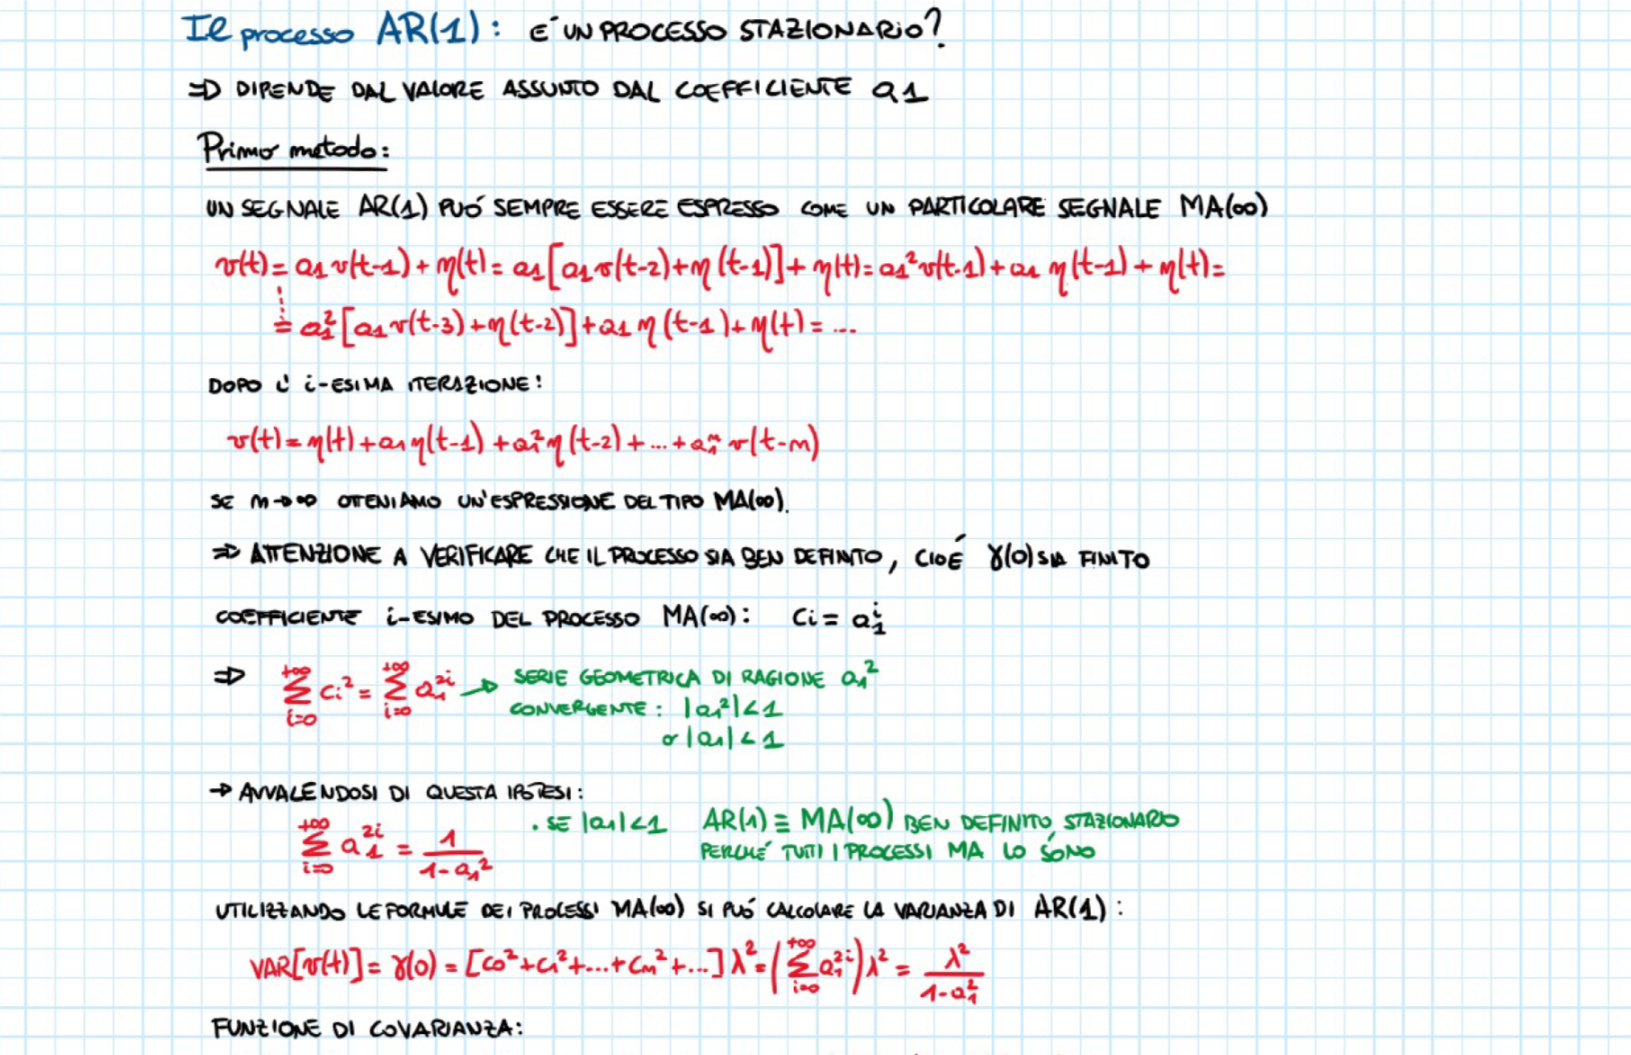 Il processo AR(1): E' UN PROCESSO STAZIONARIO?
=> DIPENDE DAL VALORE ASSUNTO DAL COEFFICIENTE a1
Primo metodo:
UN SEGNALE AR(1) PUÓ SEMPRE ESSERE ESPRESSO COME UN PARTICOLARE SEGNALE MA(∞)
v(t) = a1 v(t-1) + η(t) = a1[a1 v(t-2) + η(t-1)] + η(t) = a1² v(t-1) + a1 η(t-1) + η(t) =
= a1² [a1 v(t-3) + η(t-2)] + a1 η(t-1) + η(t) = ...
DOPO L' i-ESIMA ITERAZIONE:
v(t) = η(t) + a1 η(t-1) + a1² η(t-2) + ... + a1ⁿ v(t-n)
SE n → ∞ OTENIAMO UN'ESPRESSIONE DEL TIPO MA(∞).
=> ATTENZIONE A VERIFICARE CHE IL PROCESSO SIA BEN DEFINITO, CIOÉ γ(0) SIA FINITO
COEFFICIENTE i-ESIMO DEL PROCESSO MA(∞): Ci = a1^i
=> Σ_{i=0}^{+∞} Ci² = Σ_{i=0}^{+∞} a1^{2i} → SERIE GEOMETRICA DI RAGIONE a1²
CONVERGENTE: |a1²| < 1
o |a1| < 1
→ AVVALENDOSI DI QUESTA IPOTESI:
Σ_{i=0}^{+∞} a1^{2i} = 1/(1-a1²) . SE |a1| < 1 AR(1) ≡ MA(∞) BEN DEFINITO, STAZIONARIO
PERCHÉ TUTTI I PROCESSI MA LO SONO
UTILIZZANDO LE FORMULE DEI PROCESSI MA(∞) SI PUÓ CALCOLARE LA VARIANZA DI AR(1):
VAR[v(t)] = γ(0) = [C0² + C1² + ... + Cn² + ...] λ² = (Σ_{i=0}^{+∞} a1^{2i}) λ² = λ²/(1-a1²)
FUNZIONE DI COVARIANZA: